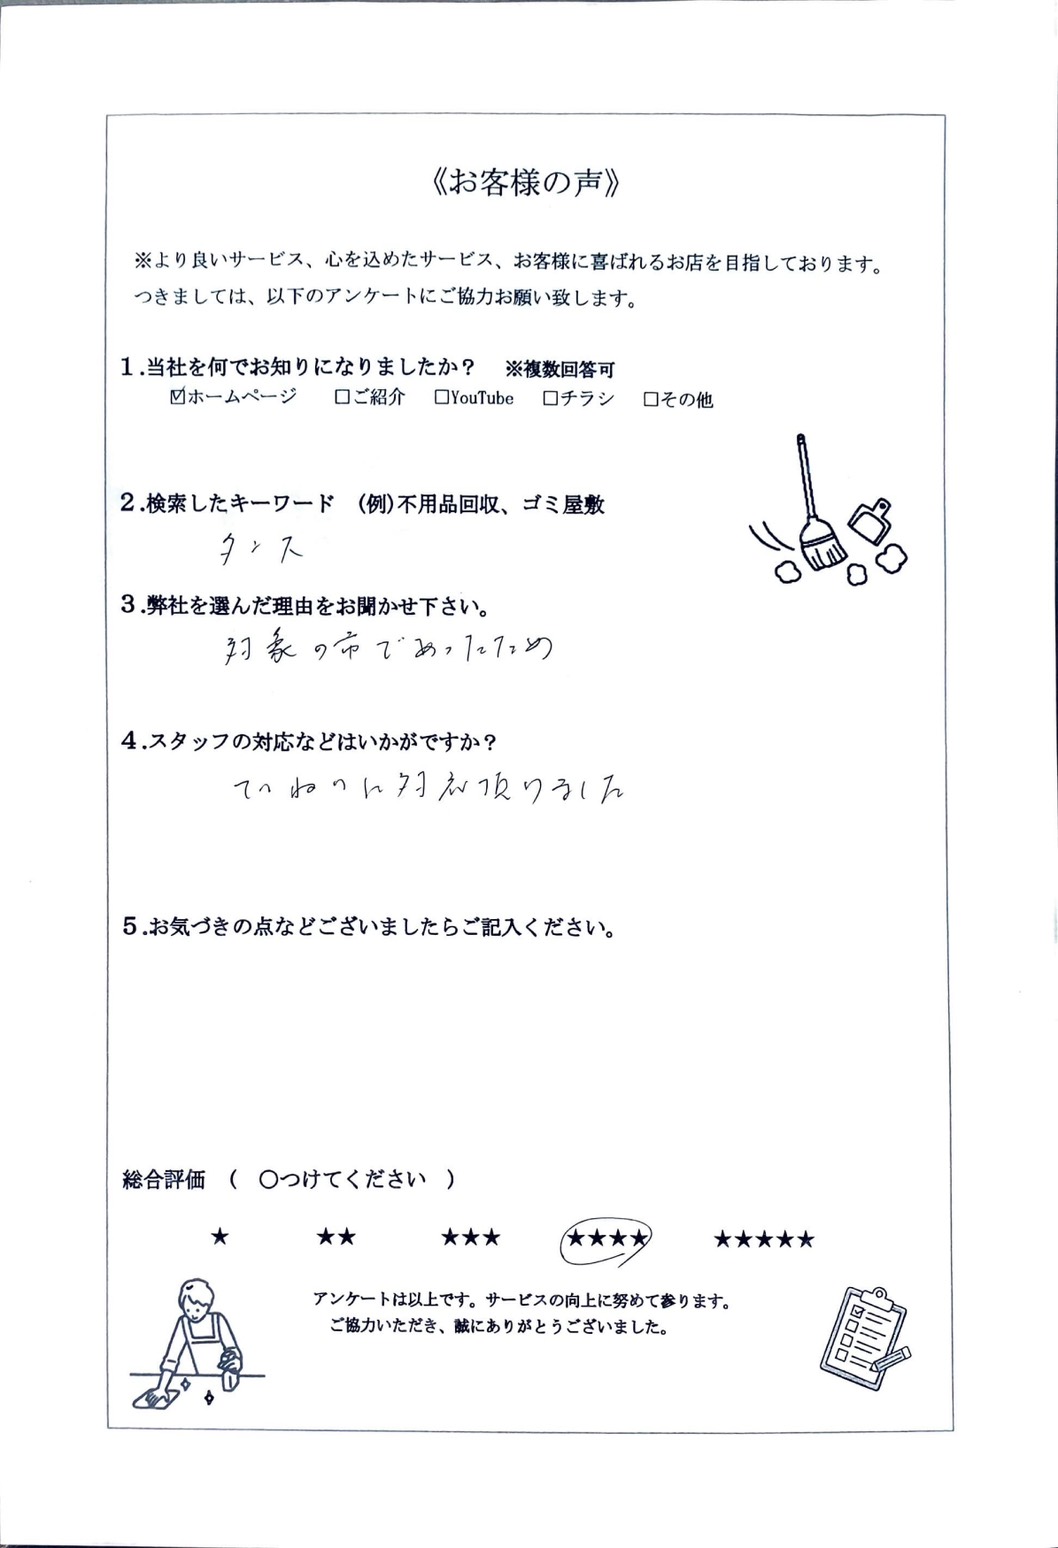 《お客様の声》
※より良いサービス、心を込めたサービス、お客様に喜ばれるお店を目指しております。
つきましては、以下のアンケートにご協力お願い致します。
１.当社を何でお知りになりましたか？　※複数回答可
☑ホームページ　□ご紹介　□YouTube　□チラシ　□その他
２.検索したキーワード　(例)不用品回収、ゴミ屋敷
タンス
３.弊社を選んだ理由をお聞かせ下さい。
対象の市であったため
４.スタッフの対応などはいかがですか？
ていねいに対応頂けました
５.お気づきの点などございましたらご記入ください。
総合評価　(　〇つけてください　)
★　★★　★★★　★★★★　★★★★★
アンケートは以上です。サービスの向上に努めて参ります。
ご協力いただき、誠にありがとうございました。